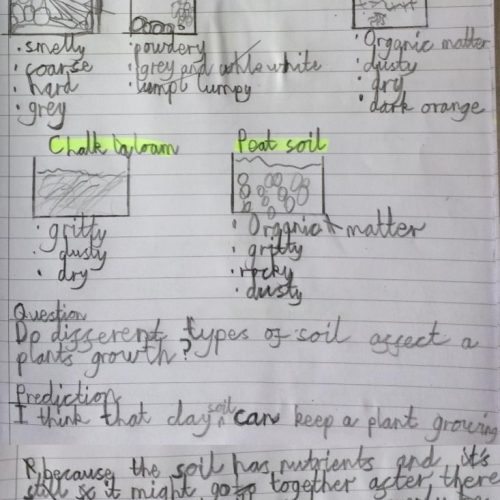 • smelly
• coarse
• hard
• grey
• powdery
• grey and white white
• lumpt lumpy
• Organic matter
• dusty
• dry
• dark orange
Chalk loam
Peat soil
• gritty
• dusty
• dry
• Organic matter
• gritty
• rocky
• dusty
Question
Do different types of soil affect a
plants growth?
Prediction
I think that clay soil can keep a plant growing
because the soil has nutrients and it's
still so it might go together after there